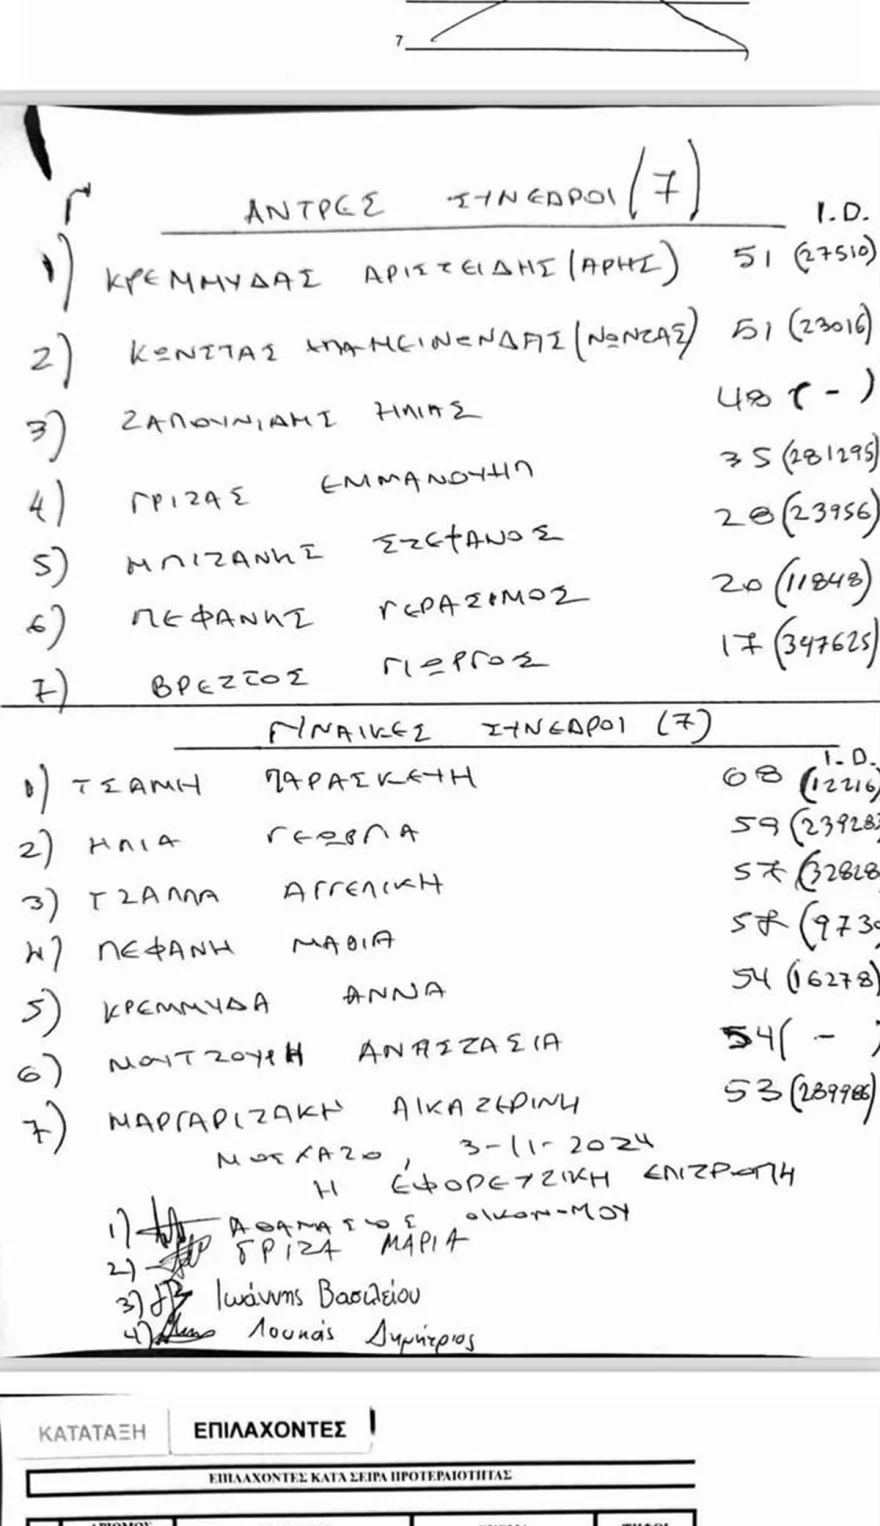 7
ΑΝΤΡΕΣ ΣΥΝΕΔΡΟΙ (7) I.D.
1) ΚΡΕΜΜΥΔΑΣ ΑΡΙΣΤΕΙΔΗΣ (ΑΡΗΣ) 51 (27510)
2) ΚΩΝΣΤΑΣ ΕΠΑΜΕΙΝΩΝΔΑΣ (ΝΩΝΤΑΣ) 51 (23016)
3) ΖΑΠΟΥΝΙΔΗΣ ΗΛΙΑΣ 48 ( - )
4) ΓΡΙΖΑΣ ΕΜΜΑΝΟΥΗΛ 35 (281295)
5) ΜΠΙΖΑΝΗΣ ΣΤΕΦΑΝΟΣ 28 (23956)
6) ΠΕΦΑΝΗΣ ΓΕΡΑΣΙΜΟΣ 20 (11848)
7) ΒΡΕΤΤΟΣ ΓΙΩΡΓΟΣ 17 (347625)
ΓΥΝΑΙΚΕΣ ΣΥΝΕΔΡΟΙ (7)
I.D.
1) ΤΣΑΜΗ ΠΑΡΑΣΚΕΥΗ 68 (12216)
2) ΗΛΙΑ ΓΕΩΡΓΙΑ 59 (23928)
3) ΤΖΑΛΛΑ ΑΓΓΕΛΙΚΗ 57 (32828)
4) ΠΕΦΑΝΗ ΜΑΘΙΑ 57 (973
5) ΚΡΕΜΜΥΔΑ ΑΝΝΑ 54 (16278)
6) ΜΟΥΤΖΟΥΡΗ ΑΝΑΣΤΑΣΙΑ 54 ( - )
7) ΜΑΡΓΑΡΙΤΑΚΗ ΑΙΚΑΤΕΡΙΝΗ 53 (289986)
ΜΟΣΧΑΤΟ, 3-11-2024
Η ΕΦΟΡΕΥΤΙΚΗ ΕΠΙΤΡΟΠΗ
1) ΑΘΑΝΑΣΙΟΣ ΟΙΚΟΝ-ΜΟΥ
2) ΓΡΙΖΑ ΜΑΡΙΑ
3) Ιωάννης Βασιλείου
4) Λουκάς Δημήτριος
ΚΑΤΑΤΑΞΗ ΕΠΙΛΑΧΟΝΤΕΣ
ΕΠΙΛΑΧΟΝΤΕΣ ΚΑΤΑ ΣΕΙΡΑ ΠΡΟΤΕΡΑΙΟΤΗΤΑΣ
ΑΡΙΘΜΟΣ